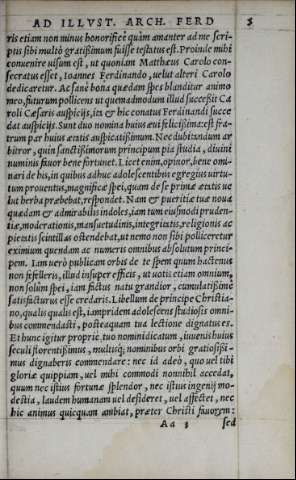 AD ILLVST. ARCH. FERD 3
ris etiam non minus honorificè quàm amanter ad me scri-
ptis sibi multò gratißimum fuisse testatus est. Proinde mihi
conuenire uisum est, ut quoniam Matthæus Carolo con-
secratus esset, Ioannes Ferdinando, uelut alteri Carolo
dedicaretur. Ac sanè bona quædam spes blanditur animo
meo, futurum pollicens ut quemadmodum illud succeßit Ca
roli Cæsaris auspicijs, ita & hic conatus Ferdinandi succe
dat auspicijs. Sunt duo nomina huius æui felicißima: est fra-
trum par huius ætatis auspicatißimum. Nec dubitandum ar
bitror, quin sanctißimorum principum pia studia, diuini
numinis fauor bene fortunet. Licet enim, opinor, bene omi-
nari de his, in quibus adhuc adolescentibus egregius uirtu-
tum prouentus, magnificæ spei, quam de se primæ ætatis ue
lut herba præbebat, respondet. Nam & pueritiæ tuæ noua
quædam & admirabilis indoles, iam tum eiusmodi pruden-
tiæ, moderationis, mansuetudinis, integritatis, religionis ac
pietatis scintillas ostendebat, ut nemo non sibi polliceretur
eximium quendam ac numeris omnibus absolutum princi-
pem. Iam uerò publicam orbis de te spem quum hactenus
non fefelleris, illud insuper efficis, ut uotis etiam omnium,
non solùm spei, iam factus natu grandior, cumulatißimè
satisfacturus esse credaris. Libellum de principe Christia-
no, qualis qualis est, iampridem adolescens studiosis omni-
bus commendasti, posteaquam tua lectione dignatus es.
Et hunc igitur proprie tuo nomini dicatum, iuuenis huius
seculi florentißimus, multisq; nominibus orbi gratiosißi-
mus dignaberis commendare: nec id adeò, quo uel tibi
gloriæ quippiam, uel mihi commodi nonnihil accedat,
quum nec istius fortunæ splendor, nec istius ingenij mo-
destia, laudem humanam uel desideret, uel affectet, nec
hic animus quicquam ambiat, præter Christi fauorem:
Aa 3 sed